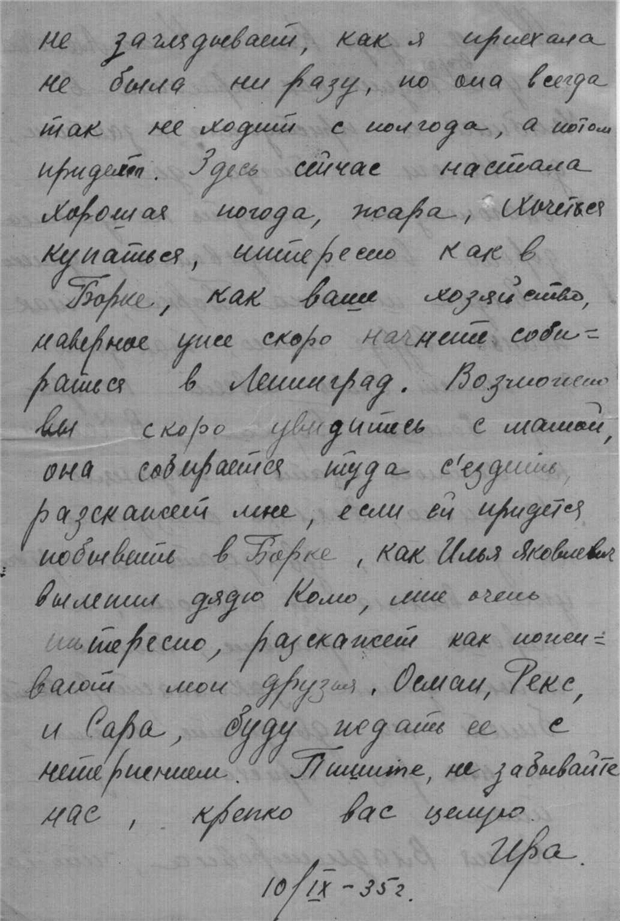 не заглядывает, как я приехала
не была ни разу, но она всегда
так не ходит с полгода, а потом
придет. Здесь сейчас настала
хорошая погода, жара, хочеться
купаться, интересно как в
Борке, как ваше хозяйство,
наверное уже скоро начнете соби=
раться в Ленинград. Возможно
вы скоро увидитесь с мамой,
она собирается туда с'ездить,
разскажет мне, если ей придется
побывать в Борке, как Илья Яковлевич
вылепил дядю Колю, мне очень
интересно, разскажет как пожи=
вают мои друзья, Осман, Рекс,
и Сара, буду ждать ее с
нетерпением. Пишите, не забывайте
нас, крепко вас целую.
Ира.
10/IX-35г.